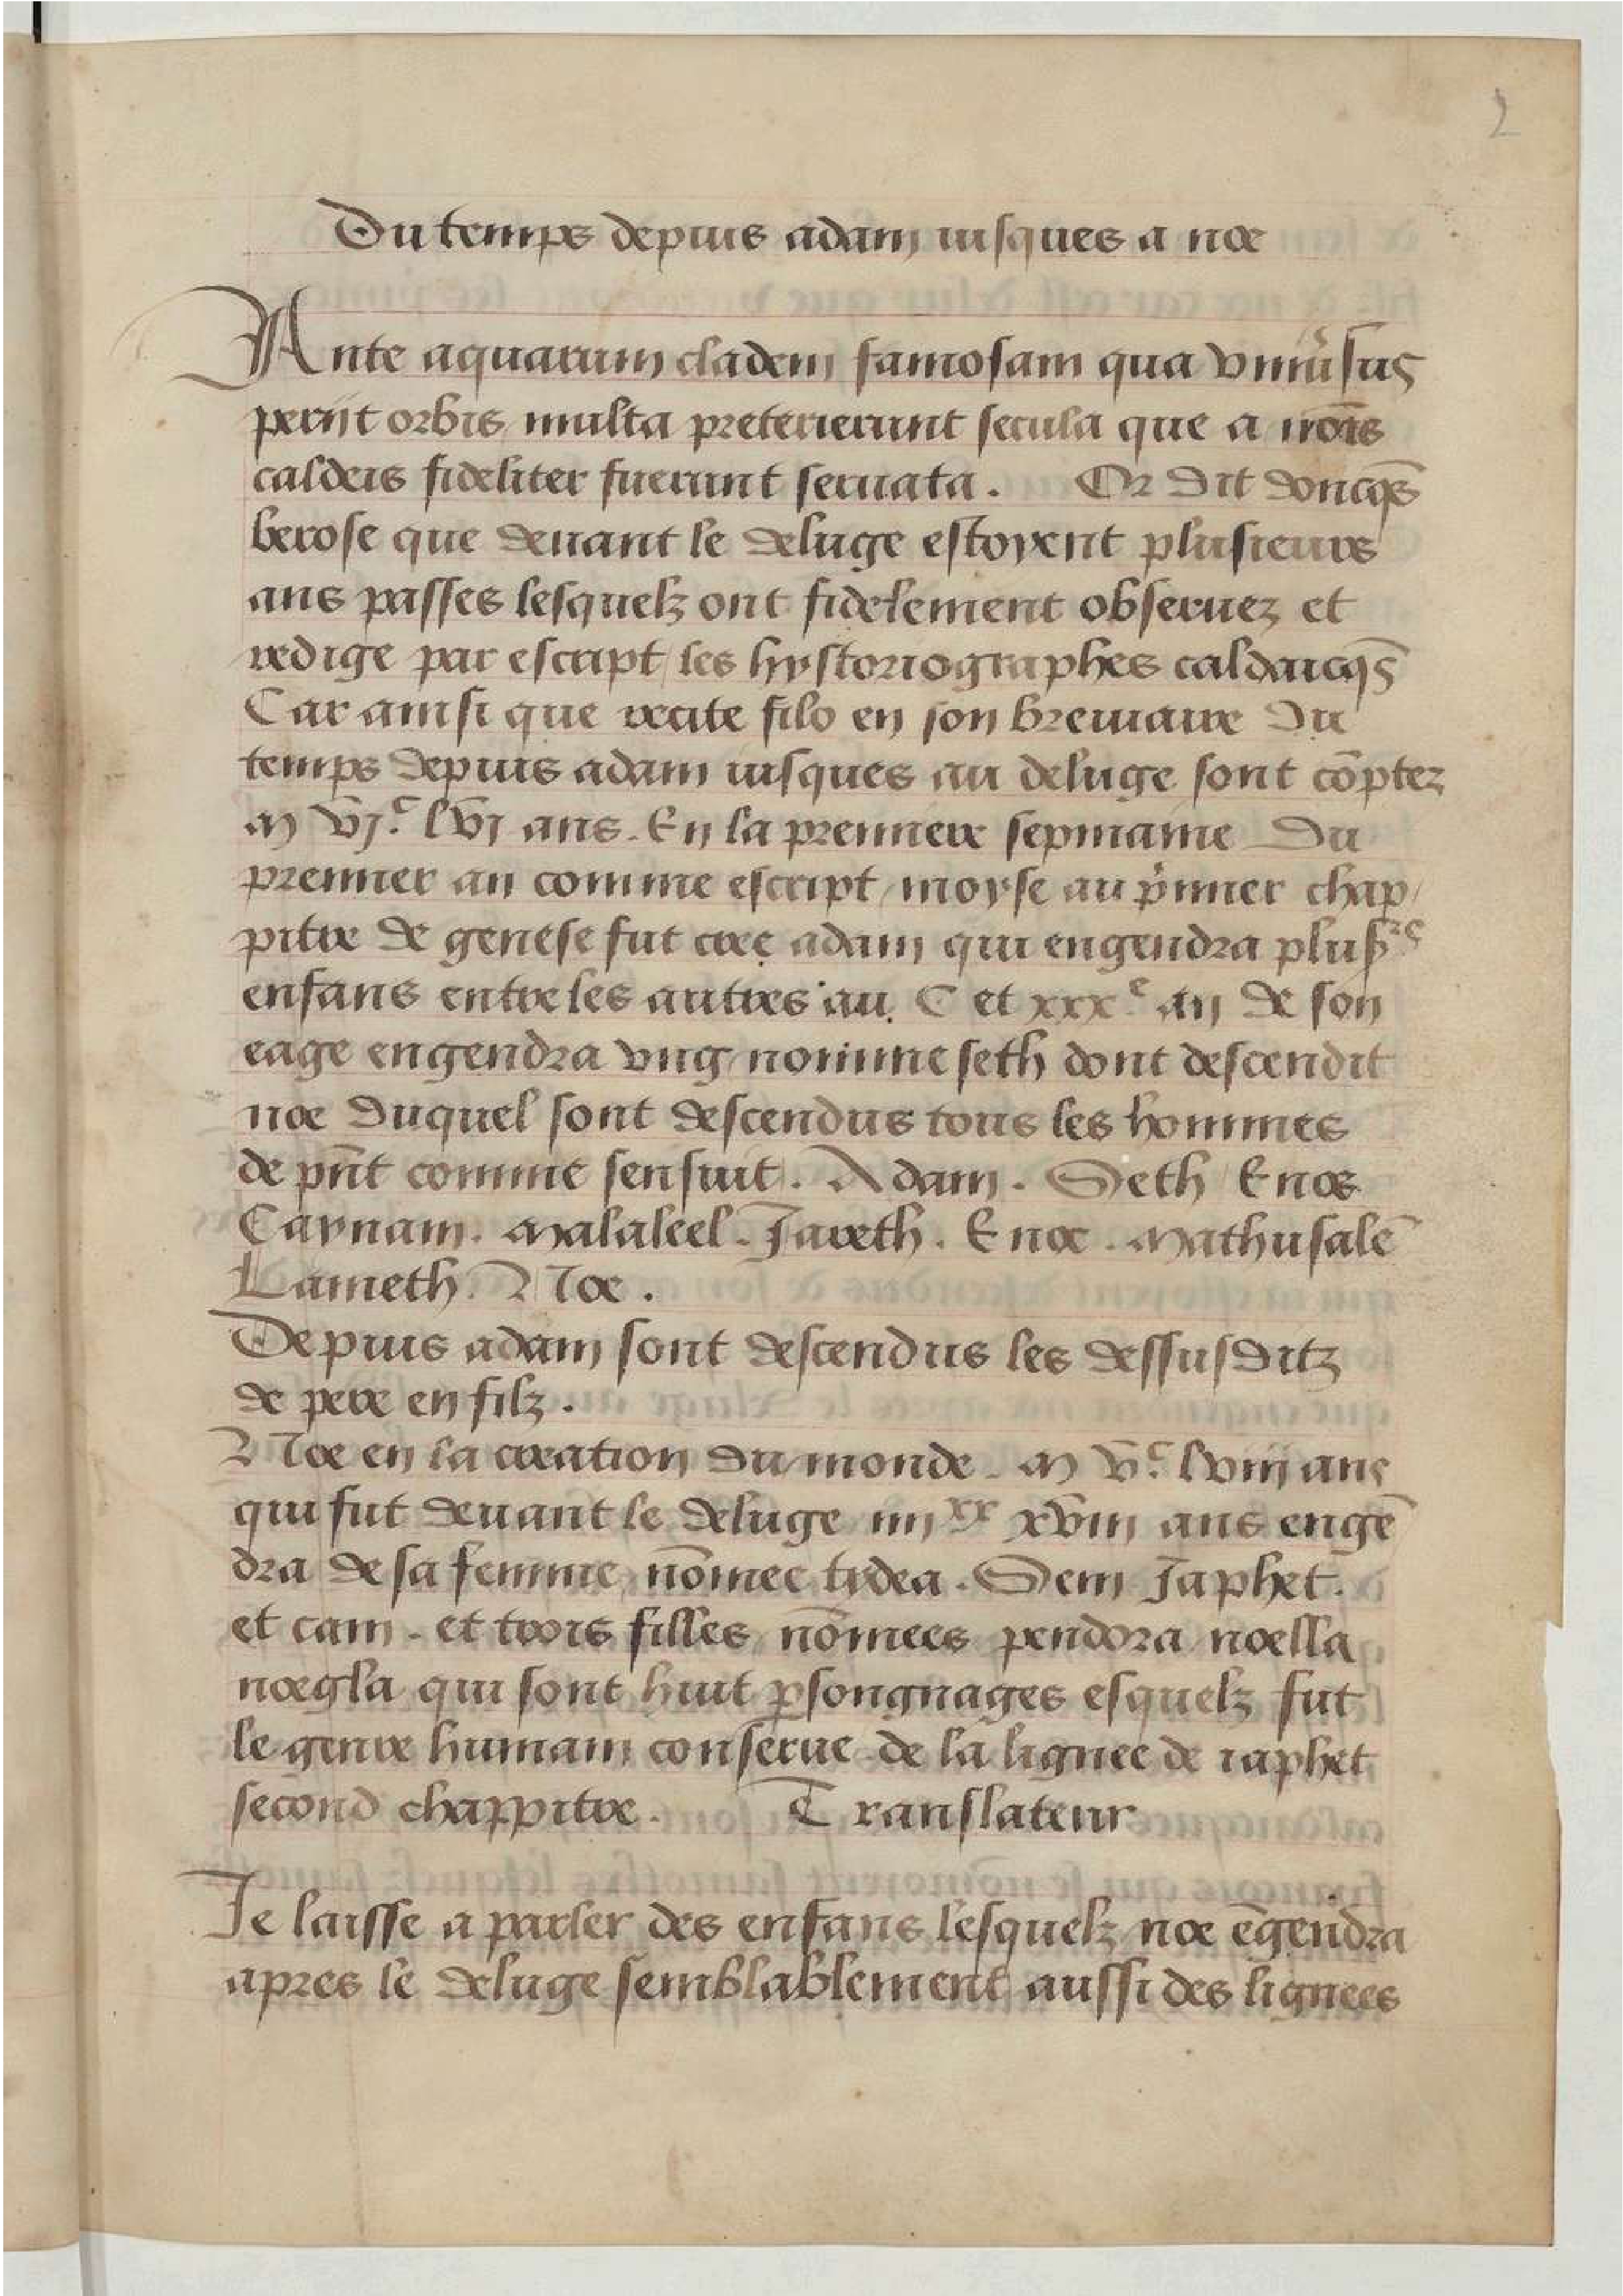 2
Du temps depuis adam iusques a noe
Ante aquarum cladem famosam qua vniũsus
periit orbis multa preterierunt secula que a nr̃is
caldeis fideliter fuerunt seruata. Or dit doncq̃s
berose que deuant le deluge estoyent plusieurs
ans passes lesquelz ont fidelement obseruez et
redige par escript les hystoriographes caldaicq̃s
Car ainsi que recite filo en son breuiaire du
temps depuis adam iusques au deluge sont cõptez
m vjᶜ lvj ans. En la premiere sepmaine du
premier an comme escript moyse au p̃mier chap
pitre de genese fut cree adam qui engendra plusʳˢ
enfans entre les autres au C et xxxᵉ an de son
eage engendra vng nomme seth dont descendit
noe duquel sont descendus tous les hommes
de pñt comme sensuit. Adam. Seth Enos
Caynam. Malaleel. Jareth. Enoc. Mathusalẽ
Lameth. Noe.
Depuis adam sont descendus les dessusditz
de pere en filz.
Noe en la creation du monde. m vᶜ lviij ans
qui fut deuant le deluge iiijˣˣ xviij ans engẽ
dra de sa femme nõmee tydea. Sem Japhet.
et cam. et trois filles nõmees pendora noella
noegla qui sont huit p̱songnages esquelz fut
le genre humain conserue de la lignee de iaphet
second chappitre. Translateur
Je laisse a parler des enfans lesquelz noe ẽgendra
apres le deluge semblablement aussi des lignees